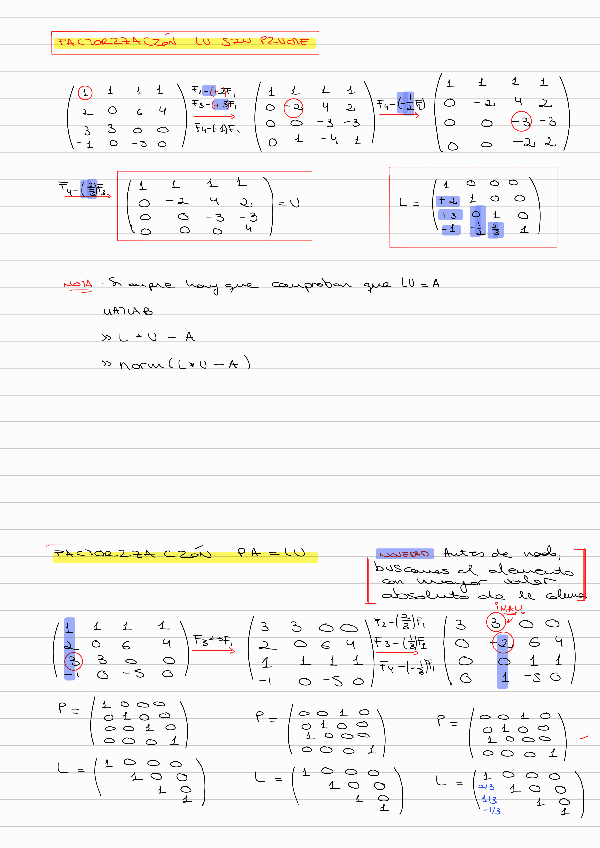 FACTORIZACIÓN LU SIN PIVOTE
1 1 1 1
2 0 6 4
3 3 0 0
-1 0 -3 0
F3-(+3)F1
F4-(-1)F1
1 1 1 1
0 -2 4 2
0 0 -3 -3
0 1 -4 1
F4-(-1/2)F2
1 1 1 1
0 -2 4 2
0 0 -3 -3
0 0 -2 2
F4-(2/3)F3
1 1 1 1
0 -2 4 2
0 0 -3 -3
0 0 0 4
= U
L =
1 0 0 0
+2 1 0 0
+3 0 1 0
-1 -1/2 2/3 1
NOTA: Siempre hay que comprobar que LU=A
MATLAB
>> L * U - A
>> norm(L*U-A)
FACTORIZACIÓN PA=LU
NOVEDAD Antes de nada,
buscamos el elemento
con mayor valor
absoluto de la
1 1 1 1
2 0 6 4
3 3 0 0
-1 0 -5 0
3 3 0 0
2 0 6 4
1 1 1 1
-1 0 -5 0
F2-(2/3)F1
F3-(1/3)F1
F4-(-1/3)F1
3 3 0 0
0 -2 6 4
0 0 1 1
0 1 -5 0
P =
1 0 0 0
0 1 0 0
0 0 1 0
0 0 0 1
P =
0 0 1 0
0 1 0 0
1 0 0 0
0 0 0 1
P =
0 0 1 0
0 1 0 0
1 0 0 0
0 0 0 1
L =
1 0 0 0
1 0 0
1 0
1
L =
1 0 0 0
1 0 0
1 0
1
L =
1 0 0 0
2/3 1 0 0
1/3 1 0
-1/3 1